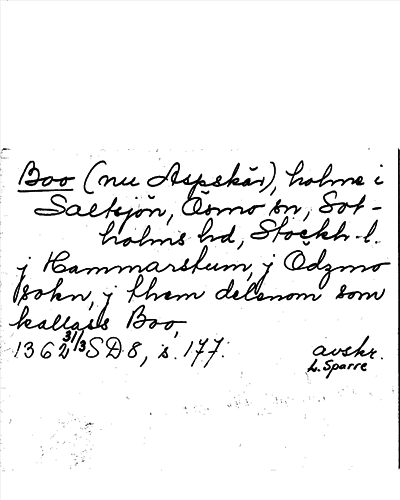 Boo (nu Aspskär), holme i
Saltsjön, Ösmo sn, Sot-
holms hd, Stockh. l.
j Hammarstum, j Ødzmo
sokn, j them delenom som
kallass Boo,
1362 31/3 SD 8, s. 177. avskr.
L. Sparre